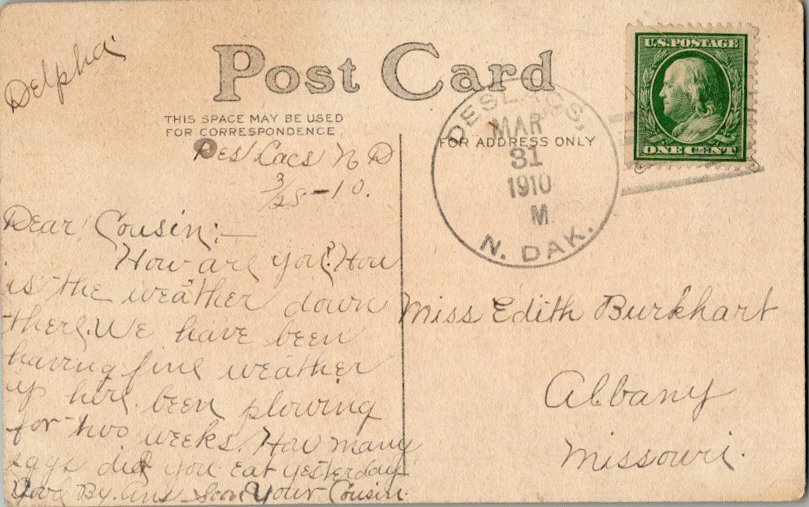 Delpha
Post Card
THIS SPACE MAY BE USED
FOR CORRESPONDENCE
FOR ADDRESS ONLY
U.S. POSTAGE
ONE CENT
DESLACS,
MAR
31
1910
M
N. DAK.
Des Lacs N D
3/28-10.
Dear Cousin:—
How are you? How
is the weather down
there. We have been
having fine weather
up here been plowing
for two weeks. How many
eggs did you eat yesterday
Good By. Ans Soon Your Cousin.
Miss Edith Burkhart
Albany
Missouri.